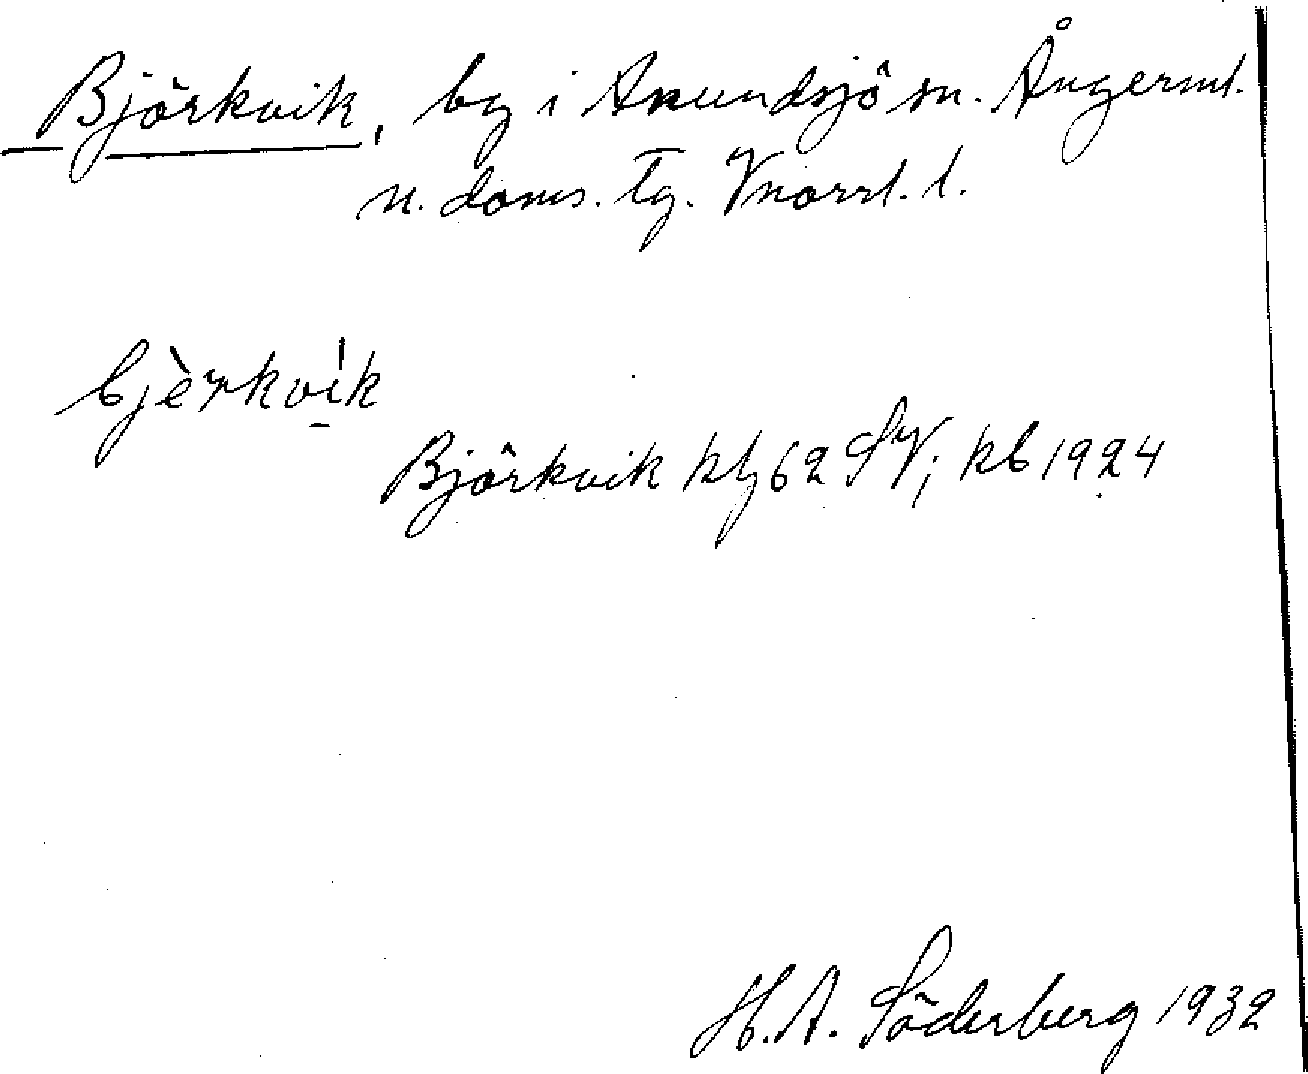 Björkvik, by i Anundsjö sn. Ångerml.
n. doms. tg. Vnorrl. l.
bjèrkvìk
Björkvik kbl 62 SV; kb 1924
H. A. Söderberg 1932